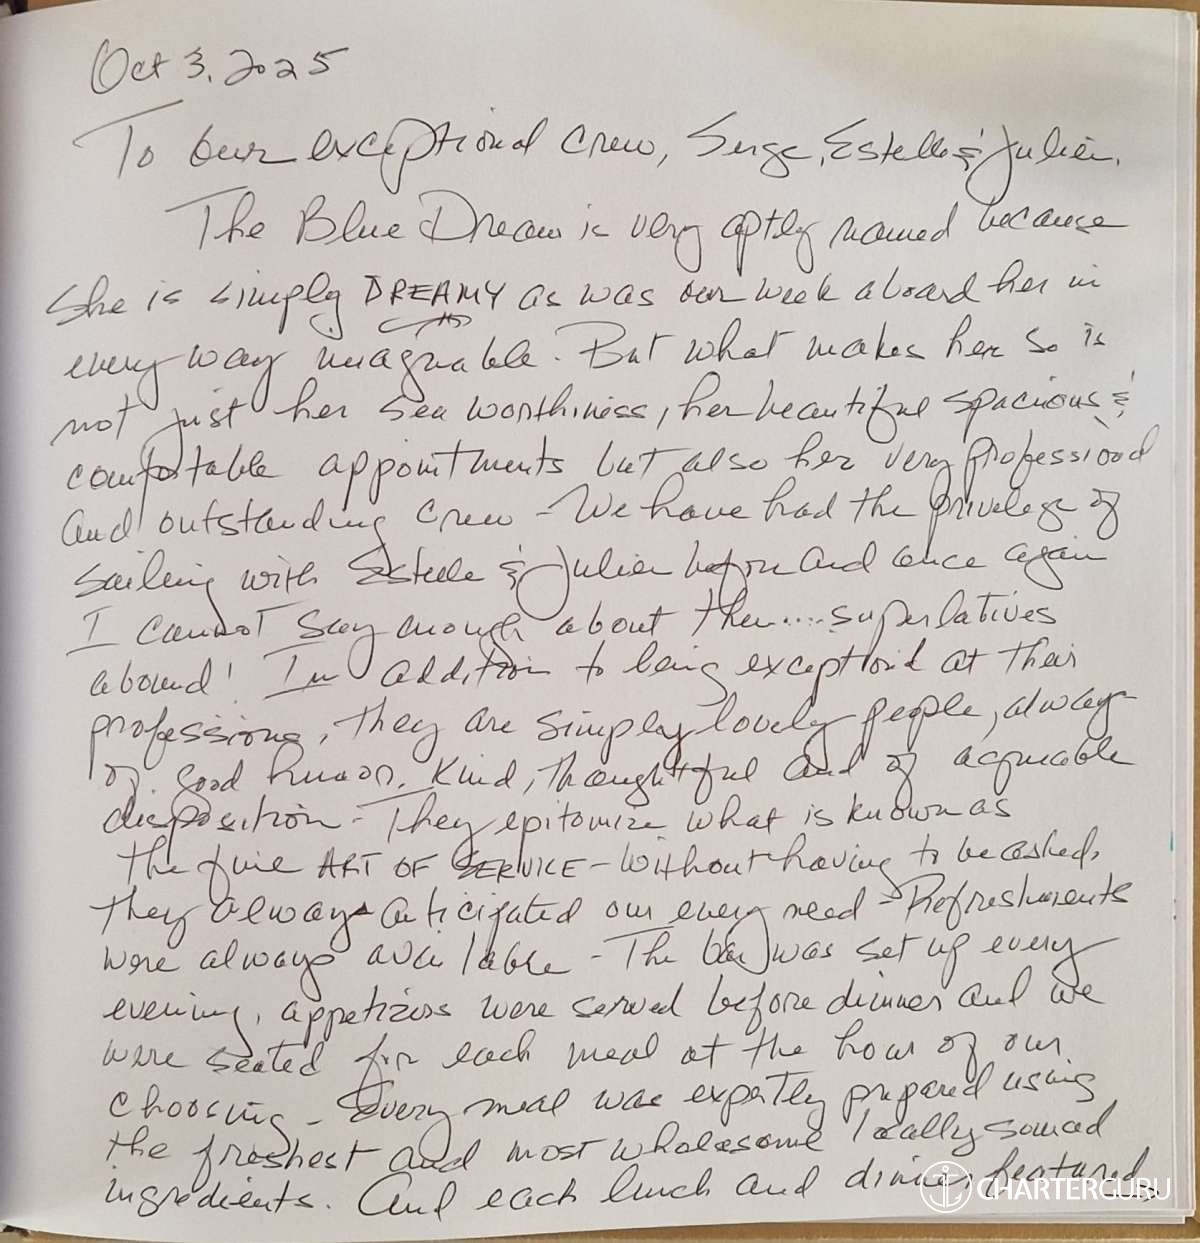 Oct 3, 2025
To our exceptional crew, Serge, Estelle & Julien,
The Blue Dream is very aptly named because
she is simply DREAMY as was our week aboard her in
every way imaginable. But what makes her so is
not just her sea worthiness, her beautiful spacious &
comfortable appointments but also her very professional
and outstanding crew - We have had the privelege of
sailing with Estelle & Julien before and once again
I cannot say enough about them.... superlatives
abound! In addition to being exceptional at their
professions, they are simply lovely people, always
of good humor, kind, thoughtful and of agreeable
disposition - They epitomize what is known as
the fine ART OF SERVICE - Without having to be asked,
they always anticipated our every need - Refreshments
were always available - The bar was set up every
evening, appetizers were served before dinner and we
were seated for each meal at the hour of our
choosing - Every meal was expertly prepared using
the freshest and most wholesome locally sourced
ingredients. And each lunch and dinner featured
CHARTERGURU